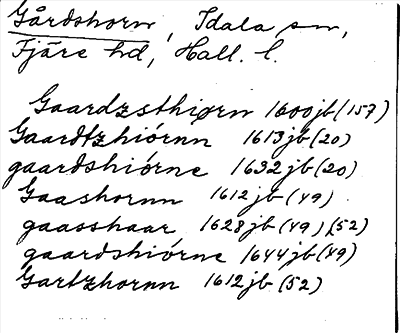 Gårdshorn, Idala sn,
Fjäre hd, Hall. l.
Gaardzsthiørn 1600 jb (157)
Gaardtzhiórnn 1613 jb (20)
gaardshiórne 1632 jb (20)
Gaashornn 1612 jb (49)
gaasshaar 1628 jb (49) (52)
gaardshiórne 1644 jb (49)
Gartzhornn 1612 jb (52)